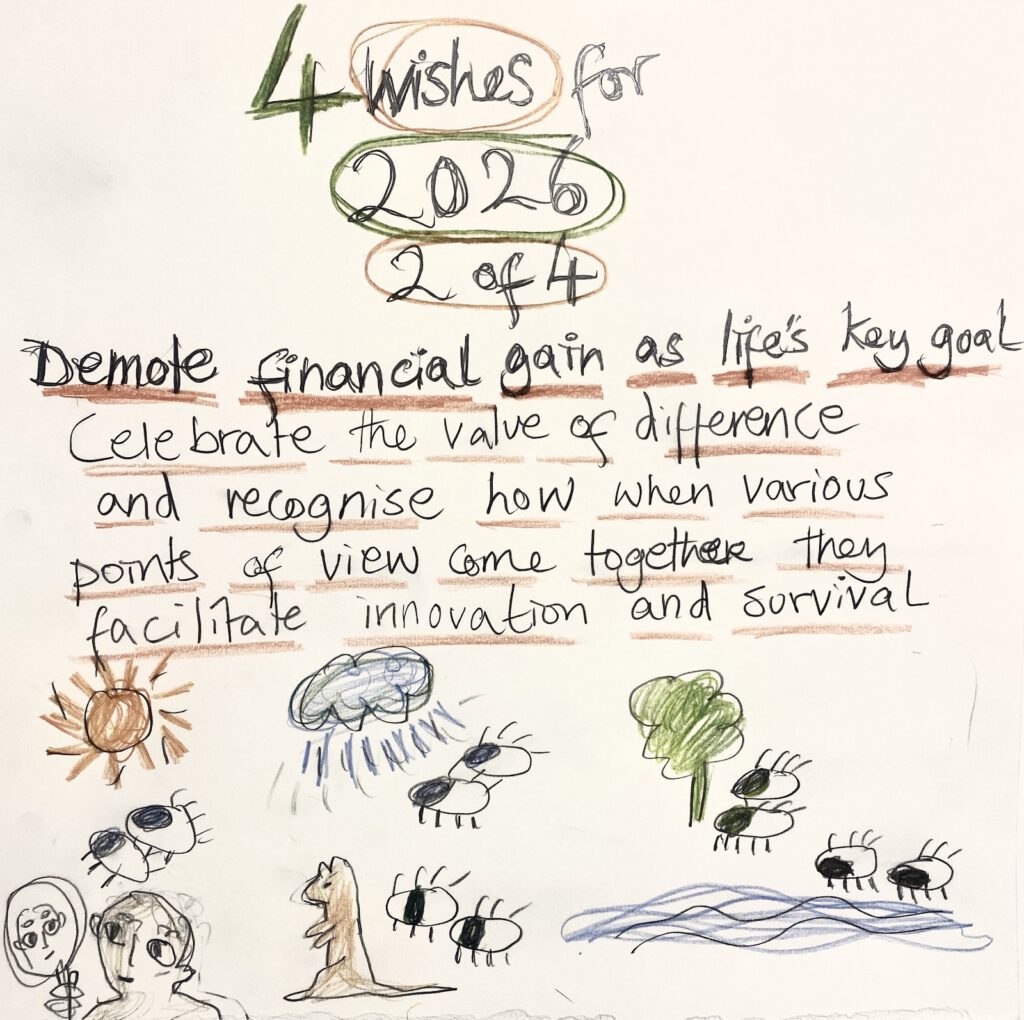 4 wishes for
2026
2 of 4
Demote financial gain as life's key goal
Celebrate the value of difference
and recognise how when various
points of view come together they
facilitate innovation and survival